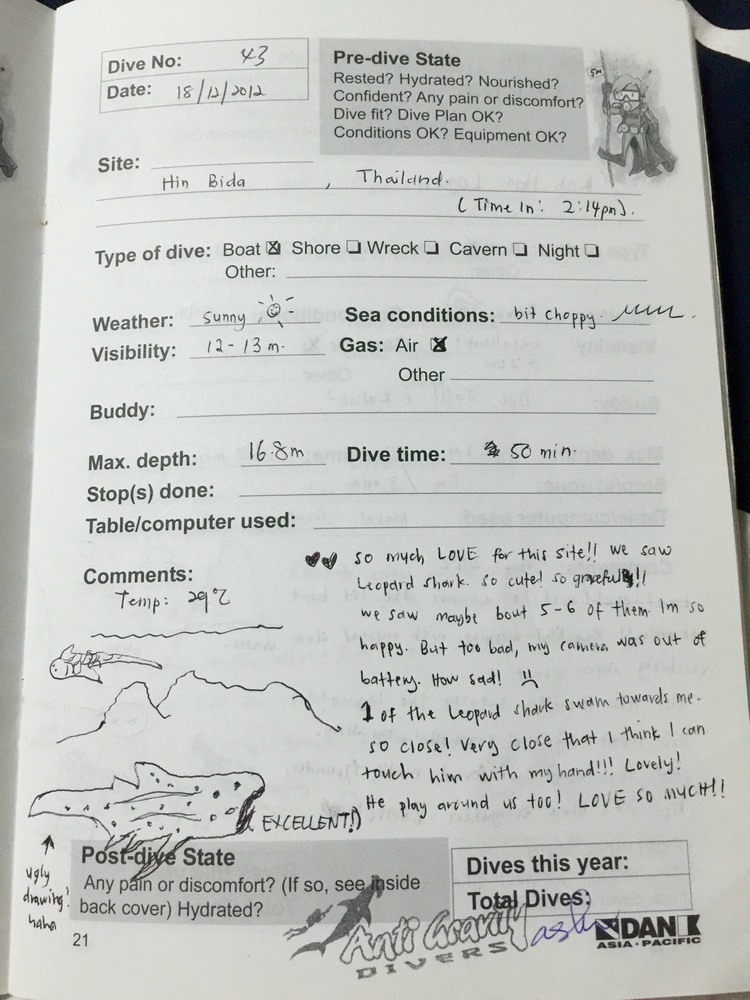 Dive No: 43
Date: 18/12/2012
Pre-dive State
Rested? Hydrated? Nourished?
Confident? Any pain or discomfort?
Dive fit? Dive Plan OK?
Conditions OK? Equipment OK?
5M
Site:
Hin Bida , Thailand.
(Time In: 2:14pm).
Type of dive: Boat ☒ Shore ☐ Wreck ☐ Cavern ☐ Night ☐
Other:
Weather: sunny Sea conditions: bit choppy.
Visibility: 12-13 m. Gas: Air ☒
Other
Buddy:
Max. depth: 16.8m Dive time: 50 min.
Stop(s) done:
Table/computer used:
Comments:
Temp: 29°C
so much LOVE for this site!! we saw
Leopard shark. so cute! so graceful!!
we saw maybe bout 5-6 of them. Im so
happy. But too bad, my camera was out of
battery. How sad!
1 of the Leopard shark swam towards me.
so close! Very close that I think I can
touch him with my hand!!! Lovely!
He play around us too! LOVE SO MUCH!!
EXCELLENT!)
ugly
drawing!
haha
Post-dive State
Any pain or discomfort? (If so, see inside
back cover) Hydrated?
Dives this year:
Total Dives:
21
Anti Gravity
DIVERS
DAN
ASIA-PACIFIC